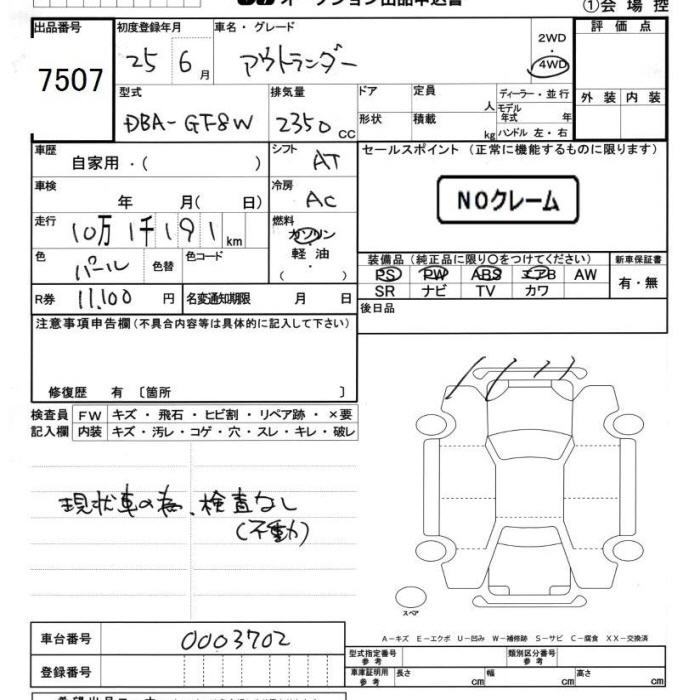 オークション出品申込書 ①会場控
出品番号 初度登録年月 車名・グレード 2WD 評価点
7507 25 6月 アウトランダー 4WD
型式 排気量 ドア 定員 人 ディーラー・並行 外装 内装
DBA-GF8W 2350 CC 形状 積載 kg モデル年式 年
ハンドル 左・右
車歴 自家用・( ) シフト AT セールスポイント (正常に機能するものに限ります)
車検 年 月( 日) 冷房 AC NOクレーム
走行 10万1千191km 燃料 ガソリン
軽油
( ・ )
色 パール 色替 色コード 装備品(純正品に限り○をつけてください) 新車保証書
PS PW ABS エアB AW 有・無
R券 11,100 円 名変通知期限 月 日 SR ナビ TV カワ
注意事項申告欄(不具合内容等は具体的に記入して下さい) 後日品
修復歴 有〔箇所 〕
検査員 FW キズ・飛石・ヒビ割・リペア跡・×要
記入欄 内装 キズ・汚レ・コゲ・穴・スレ・キレ・破レ
現状車の為、検査なし
(不動)
スペア
A-キズ E-エクボ U-凹み W-補修跡 S-サビ C-腐食 XX-交換済
車台番号 0003702 型式指定番号 参考 類別区分番号 参考
登録番号 車庫証明用 参考 長さ cm 幅 cm 高さ cm